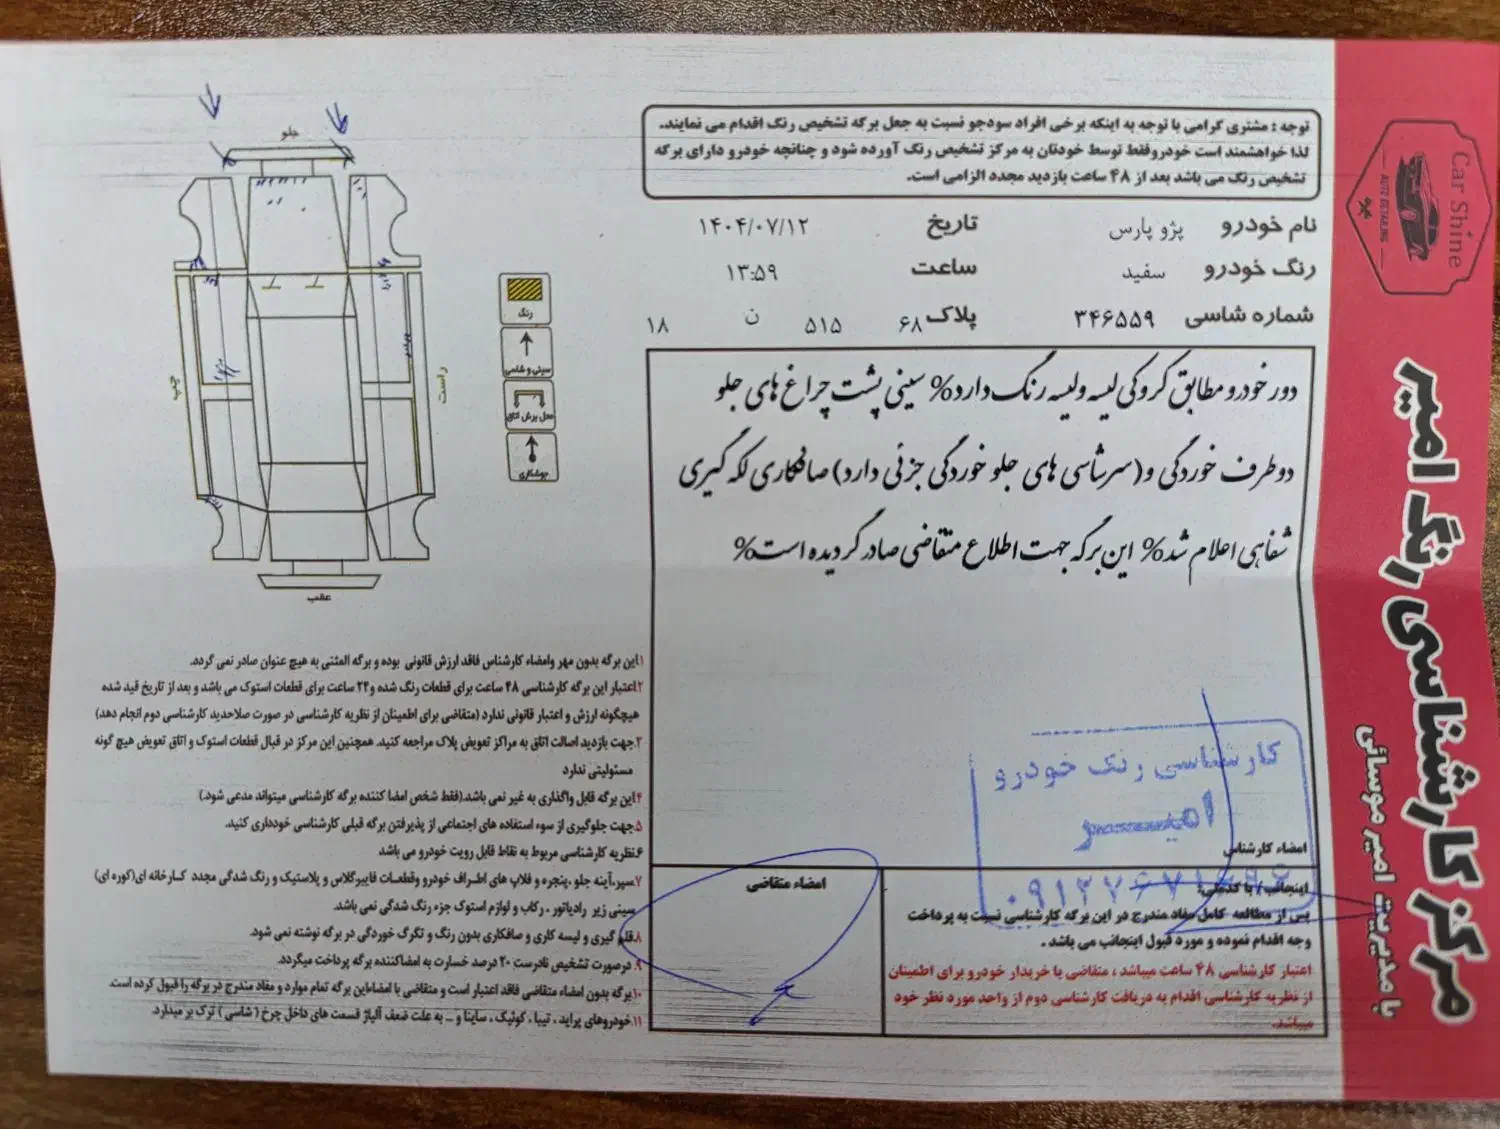 توجه : مشتری گرامی با توجه به اینکه برخی افراد سودجو نسبت به جعل برگه تشخیص رنگ اقدام می نمایند.
لذا خواهشمند است خودروفقط توسط خودتان به مرکز تشخیص رنگ آورده شود و چنانچه خودرو دارای برگه
تشخیص رنگ می باشد بعد از ۴۸ ساعت بازدید مجدد الزامی است.
نام خودرو پژو پارس تاریخ ۱۴۰۴/۰۷/۱۲
رنگ خودرو سفید ساعت ۱۳:۵۹
شماره شاسی ۳۴۶۵۵۹ پلاک ۶۸ ۵۱۵ ن ۱۸
دور خودرو مطابق کروکی لیسه ولیسه رنگ دارد% سینی پشت چراغ های جلو
دو طرف خوردگی و(سرشاسی های جلو خوردگی جزئی دارد) صافکاری لکه گیری
شفاهی اعلام شد% این برگه جهت اطلاع متقاضی صادر گردیده است%
کارشناسی رنگ خودرو
امیر
امضاء کارشناس
اینجانب / با کدملی:
پس از مطالعه کامل مفاد مندرج در این برگه کارشناسی نسبت به پرداخت
وجه اقدام نموده و مورد قبول اینجانب می باشد .
اعتبار کارشناسی ۴۸ ساعت میباشد ، متقاضی یا خریدار خودرو برای اطمینان
از نظریه کارشناسی اقدام به دریافت کارشناسی دوم از واحد مورد نظر خود
میباشد.
امضاء متقاضی
جلو
چپ
راست
عقب
رنگ
سینی و شاسی
محل برش اتاق
جوشکاری
۱.این برگه بدون مهر وامضاء کارشناس فاقد ارزش قانونی بوده و برگه المثنی به هیچ عنوان صادر نمی گردد.
۲.اعتبار این برگه کارشناسی ۴۸ ساعت برای قطعات رنگ شده و۲۴ ساعت برای قطعات استوک می باشد و بعد از تاریخ قید شده
هیچگونه ارزش و اعتبار قانونی ندارد (متقاضی برای اطمینان از نظریه کارشناسی در صورت صلاحدید کارشناسی دوم انجام دهد)
۳.جهت بازدید اصالت اتاق به مراکز تعویض پلاک مراجعه کنید. همچنین این مرکز در قبال قطعات استوک و اتاق تعویض هیچ گونه
مسئولیتی ندارد
۴.این برگه قابل واگذاری به غیر نمی باشد.(فقط شخص امضا کننده برگه کارشناسی میتواند مدعی شود.)
۵.جهت جلوگیری از سوء استفاده های اجتماعی از پذیرفتن برگه قبلی کارشناسی خودداری کنید.
۶.نظریه کارشناسی مربوط به نقاط قابل رویت خودرو می باشد
۷.سپر،آینه جلو ،پنجره و فلاپ های اطراف خودرو وقطعات فایبرگلاس و پلاستیک و رنگ شدگی مجدد کارخانه ای(کوره ای)
سینی زیر رادیاتور ، رکاب و لوازم استوک جزء رنگ شدگی نمی باشد.
۸.قلم گیری و لیسه کاری و صافکاری بدون رنگ و تگرگ خوردگی در برگه نوشته نمی شود.
۹.درصورت تشخیص نادرست ۲۰ درصد خسارت به امضاکننده برگه پرداخت میگردد.
۱۰.برگه بدون امضاء متقاضی فاقد اعتبار است و متقاضی با امضاءاین برگه تمام موارد و مفاد مندرج در برگه را قبول کرده است.
۱۱.خودروهای پراید ، تیبا ، کوئیک ، ساینا و ... به علت ضعف آلیاژ قسمت های داخل چرخ ( شاسی ) ترک بر میدارد.
Car Shine
AUTO DETAILING
مرکز کارشناسی رنگ امیر
با مدیریت امیر موسائی